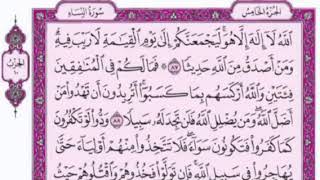 سُورَةُ النِّسَاءِ
الجُزْءُ الخَامِسُ
ٱللَّهُ لَآ إِلَٰهَ إِلَّا هُوَ لَيَجْمَعَنَّكُمْ إِلَىٰ يَوْمِ ٱلْقِيَٰمَةِ لَا رَيْبَ فِيهِ
وَمَنْ أَصْدَقُ مِنَ ٱللَّهِ حَدِيثًا ٨٧ فَمَا لَكُمْ فِي ٱلْمُنَٰفِقِينَ
فِئَتَيْنِ وَٱللَّهُ أَرْكَسَهُم بِمَا كَسَبُوٓا۟ أَتُرِيدُونَ أَن تَهْدُوا۟ مَنْ
أَضَلَّ ٱللَّهُ وَمَن يُضْلِلِ ٱللَّهُ فَلَن تَجِدَ لَهُۥ سَبِيلًا ٨٨ وَدُّوا۟ لَوْ تَكْفُرُونَ
كَمَا كَفَرُوا۟ فَتَكُونُونَ سَوَآءً فَلَا تَتَّخِذُوا۟ مِنْهُمْ أَوْلِيَآءَ حَتَّىٰ
يُهَاجِرُوا۟ فِي سَبِيلِ ٱللَّهِ فَإِن تَوَلَّوْا۟ فَخُذُوهُمْ وَٱقْتُلُوهُمْ حَيْثُ
الحِزْبُ
١٠